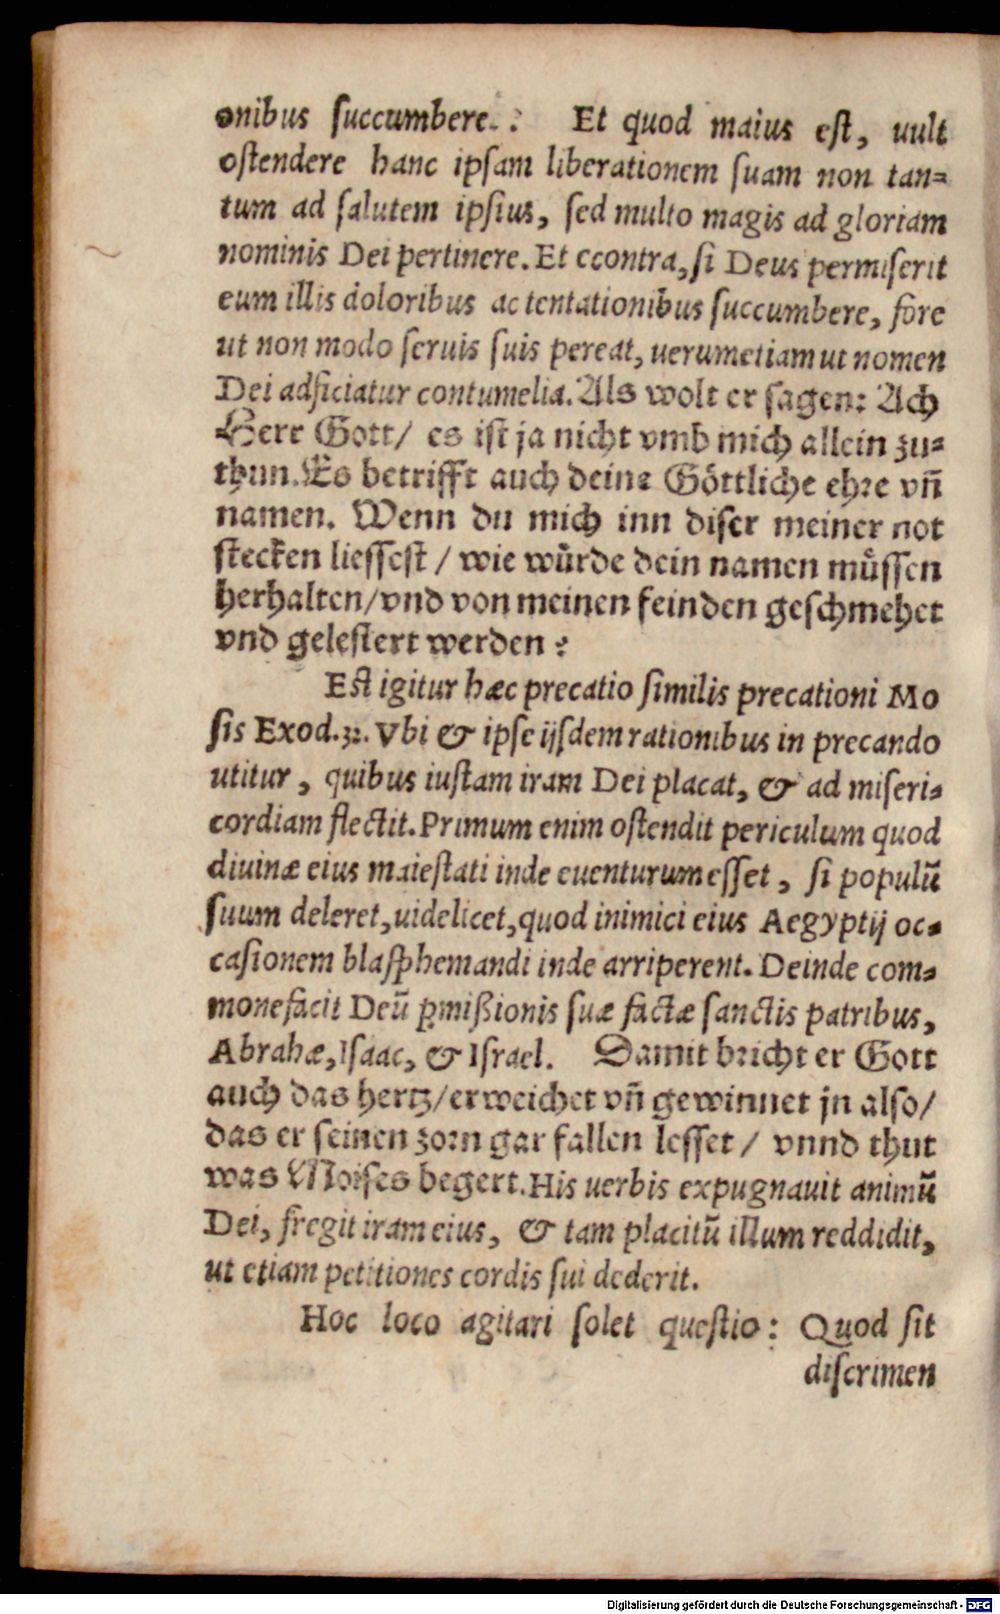 onibus succumbere. : Et quod maius est, uult
ostendere hanc ipsam liberationem suam non tan=
tum ad salutem ipsius, sed multo magis ad gloriam
nominis Dei pertinere. Et econtra, si Deus permiserit
eum illis doloribus ac tentationibus succumbere, fore
ut non modo seruis suis pereat, uerumetiam ut nomen
Dei adficiatur contumelia. Als wolt er sagen: Ach
Herr Gott/ es ist ja nicht vmb mich allein zu=
thun. Es betrifft auch deine Göttliche ehre vñ
namen. Wenn du mich inn diser meiner not
stecken liessest / wie wůrde dein namen můssen
herhalten/vnd von meinen feinden geschmehet
vnd gelestert werden ?
Est igitur hæc precatio similis precationi Mo
sis Exod. 32. Vbi & ipse ijsdem rationibus in precando
utitur, quibus iustam iram Dei placat, & ad miseri=
cordiam flectit. Primum enim ostendit periculum quod
diuinæ eius maiestati inde euenturum esset, si populū
suum deleret, uidelicet, quod inimici eius Aegyptij oc=
casionem blasphemandi inde arriperent. Deinde com=
monefacit Deū ꝓmißionis suæ factæ sanctis patribus,
Abrahæ, Isaac, & Israel. Damit bricht er Gott
auch das hertz/erweichet vñ gewinnet jn also/
das er seinen zorn gar fallen lesset / vnnd thut
was Moises begert. His uerbis expugnauit animū
Dei, fregit iram eius, & tam placitū illum reddidit,
ut etiam petitiones cordis sui dederit.
Hoc loco agitari solet questio: Quod sit
discrimen
Digitalisierung gefördert durch die Deutsche Forschungsgemeinschaft - DFG